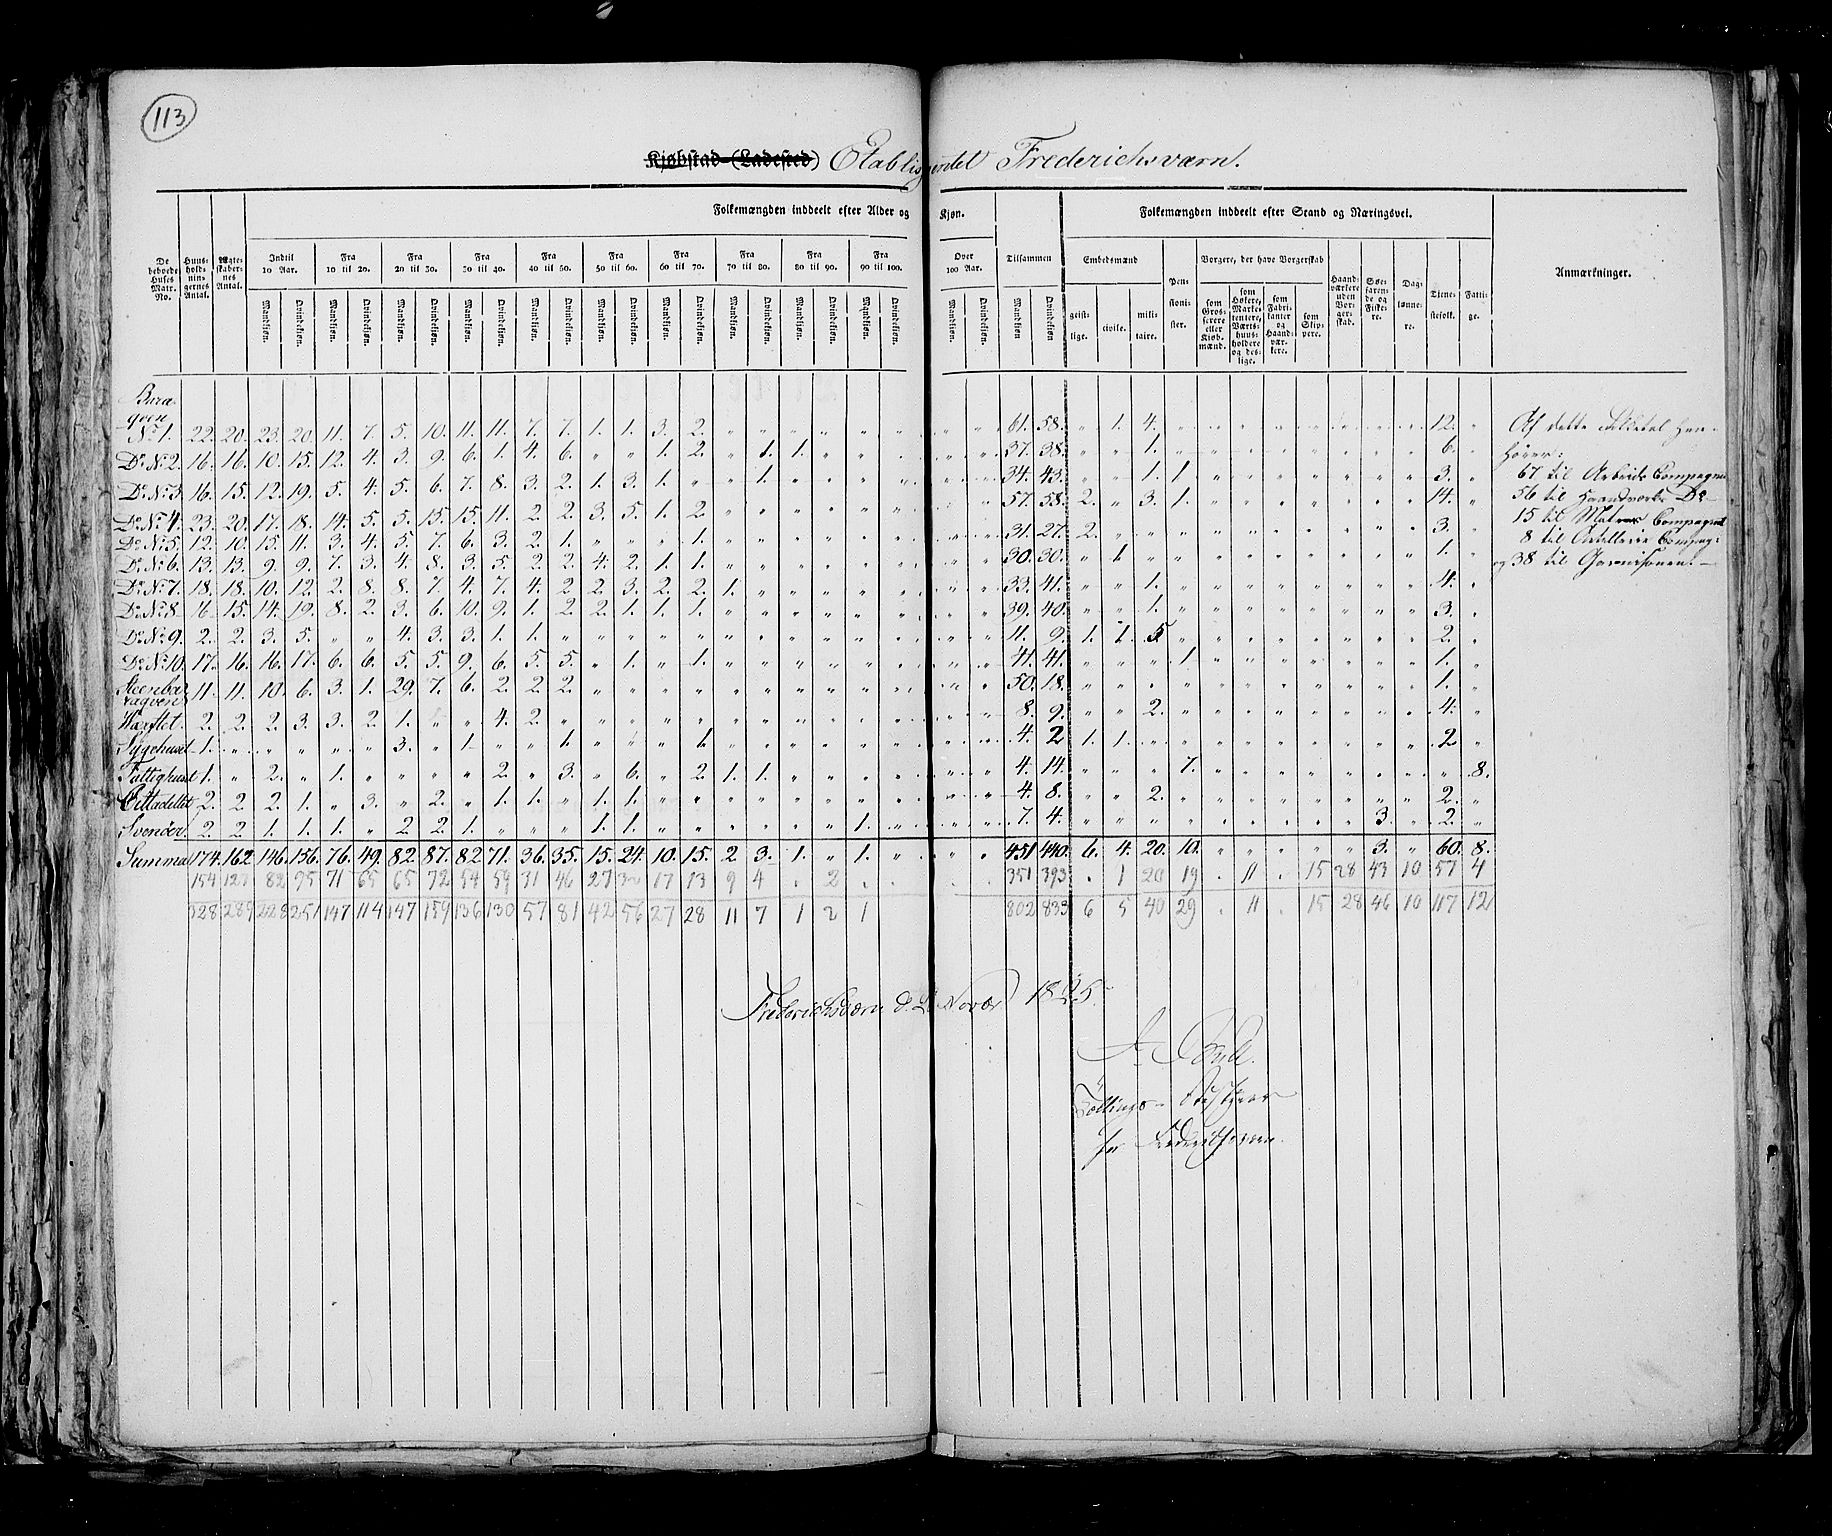 113
Kjøbstad (Ladested) Etablissementet Frederichsværn.
Folkemængden inddeelt efter Alder og Kjøn. Folkemængden inddeelt efter Stand og Næringsvei.
De beboede Huses Matr. No. Huusholdningernes Antal. Ægteskabernes Antal. Indtil 10 Aar. Fra 10 til 20. Fra 20 til 30. Fra 30 til 40. Fra 40 til 50. Fra 50 til 60. Fra 60 til 70. Fra 70 til 80. Fra 80 til 90. Fra 90 til 100. Over 100 Aar. Tilsammen Embedsmænd Pensionister. Borgere, der have Borgerskab Haandværkere uden Borgerskab. Søefarende og Fiskere. Daglønnere. Tjenestefolk. Fattige. Anmærkninger.
Mandkiøn. Qvindekiøn. Mandkiøn. Qvindekiøn. Mandkiøn. Qvindekiøn. Mandkiøn. Qvindekiøn. Mandkiøn. Qvindekiøn. Mandkiøn. Qvindekiøn. Mandkiøn. Qvindekiøn. Mandkiøn. Qvindekiøn. Mandkiøn. Qvindekiøn. Mandkiøn. Qvindekiøn. Mandkiøn. Qvindekiøn. Mandkiøn Qvindekiøn. geistlige. civile. militaire. som Grosserere eller Kjøbmænd. som Høkere, Marketentere, Værtshuusholdere og deslige. som Fabrikanter og Haandværkere. som Skippere.
Bara-
qven
No 1. 22. 20. 23. 20. 11. 7. 5. 10. 11. 11. 7. 7. 1. 1. 3. 2. " " " " " " " " 61. 58. " 1. 4. " " " " " " " " 12. "
Do No 2. 16. 16. 10. 15. 12. 4. 3. 9. 6. 1. 4. 6. " " 1. 2. " 1. 1. " " " " " 37. 38. " " 1. " " " " " " " " 6. "
Do No 3. 16. 15. 12. 19. 5. 4. 5. 6. 7. 8. 3. 2. 1. 3. 1. " " 1. " " " " " " 34. 43. " " 1. 1. " " " " " " " 3. "
Do No 4. 23. 20. 17. 18. 14. 5. 5. 15. 15. 11. 2. 2. 3. 5. 1. 2. " " " " " " " " 57. 58. 2. " 3. 1. " " " " " " " 14. "
Do No 5. 12. 10. 15. 11. 3. 4. 5. 7. 6. 3. 2. 1. " " " 1. " " " " " " " " 31. 27. 2. " " " " " " " " " " 3. "
Do No 6. 13. 13. 9. 9. 7. 3. 4. 8. 3. 5. 2. 2. 4. 2. 1. 1. " " " " " " " " 30. 30. " 1. " " " " " " " " " 1. "
Do No 7. 18. 18. 10. 12. 2. 8. 8. 7. 4. 7. 4. 2. 2. 3. 2. 2. 1. " " " " " " " 33. 41. " " 1. " " " " " " " " 4. "
Do No 8. 16. 15. 14. 19. 8. 2. 3. 6. 10. 9. 1. 2. 2. 1. 1. 1. " " " " " " " " 39. 40. " " 1. " " " " " " " " 3. "
Do No 9. 2. 2. 3. 5. " " 4. 3. 3. 1. 1. " " " " " " " " " " " " " 11. 9. 1. 1. 5. " " " " " " " " 2. "
Do No 10. 17. 16. 16. 17. 6. 6. 5. 5. 9. 6. 5. 5. " 1. " 1. " " " " " " " " 41. 41. " " " 1. " " " " " " " 1. "
Steenba-
raqven 11. 11. 10. 6. 3. 1. 29. 7. 6. 2. 2. 2. " " " " " " " " " " " " 50. 18. " " " " " " " " " " " 1. "
Værftet. 2. 2. 2. 3. 3. 2. 1. " " 4. 2. " " " " " " " " " " " " " 8. 9. " " 2. " " " " " " " " 4. "
Sygehuset 1. " " " " " 3. " 1. " " 1. " " " 1. " " " " " " " " 4. 2 1. 1. " " " " " " " " " 2 "
Fattighuset 1. " 2. " 1. " " " " 2. " 3. " 6. " 2. 1. 1. " " " " " " 4. 14. " " " 7. " " " " " " " " 8.
Cittadellet 2. 2. 2. 1. " 3. " 2. " 1. 1. " 1. 1. " " " " " " " " " " 4. 8. " " 2. " " " " " " " " 2. "
Svenöer. 2. 2. 1. 1. 1. " 2. 2. 1. " " " 1. 1. " " " " " " 1. " " " 7. 4. " " " " " " " " " 3. " 2. "
Summa 174. 162. 146. 156. 76. 49. 82. 87. 82. 71. 36. 35. 15. 24. 10. 15. 2 3. 1. " 1. " " " 451 440. 6. 4. 20. 10. " " " " " 3. " 60. 8.
154 82 95 71 65 65 72 54 59 31 46 27 17 13 9 4 . 2 . 351 393 . 1 20 19 . 11 . 15 28 43 10 57 4
328 289 228 251 147 114 147 159 136 130 57 81 42 56 27 28 11 7 1 2 1 802 833 6 5 40 29 . 11 . 15 28 46 10 117 12
Af dette Folketal hen-
hører:
67 til Arbeids Compagniet
56 til Haandværks Do
15 til Matros Compagniet
8 til Artillerie Compag:
og 38 til Garnisonen.
Frederichsværn d. Novbr 1825.
for Frederichsværn.